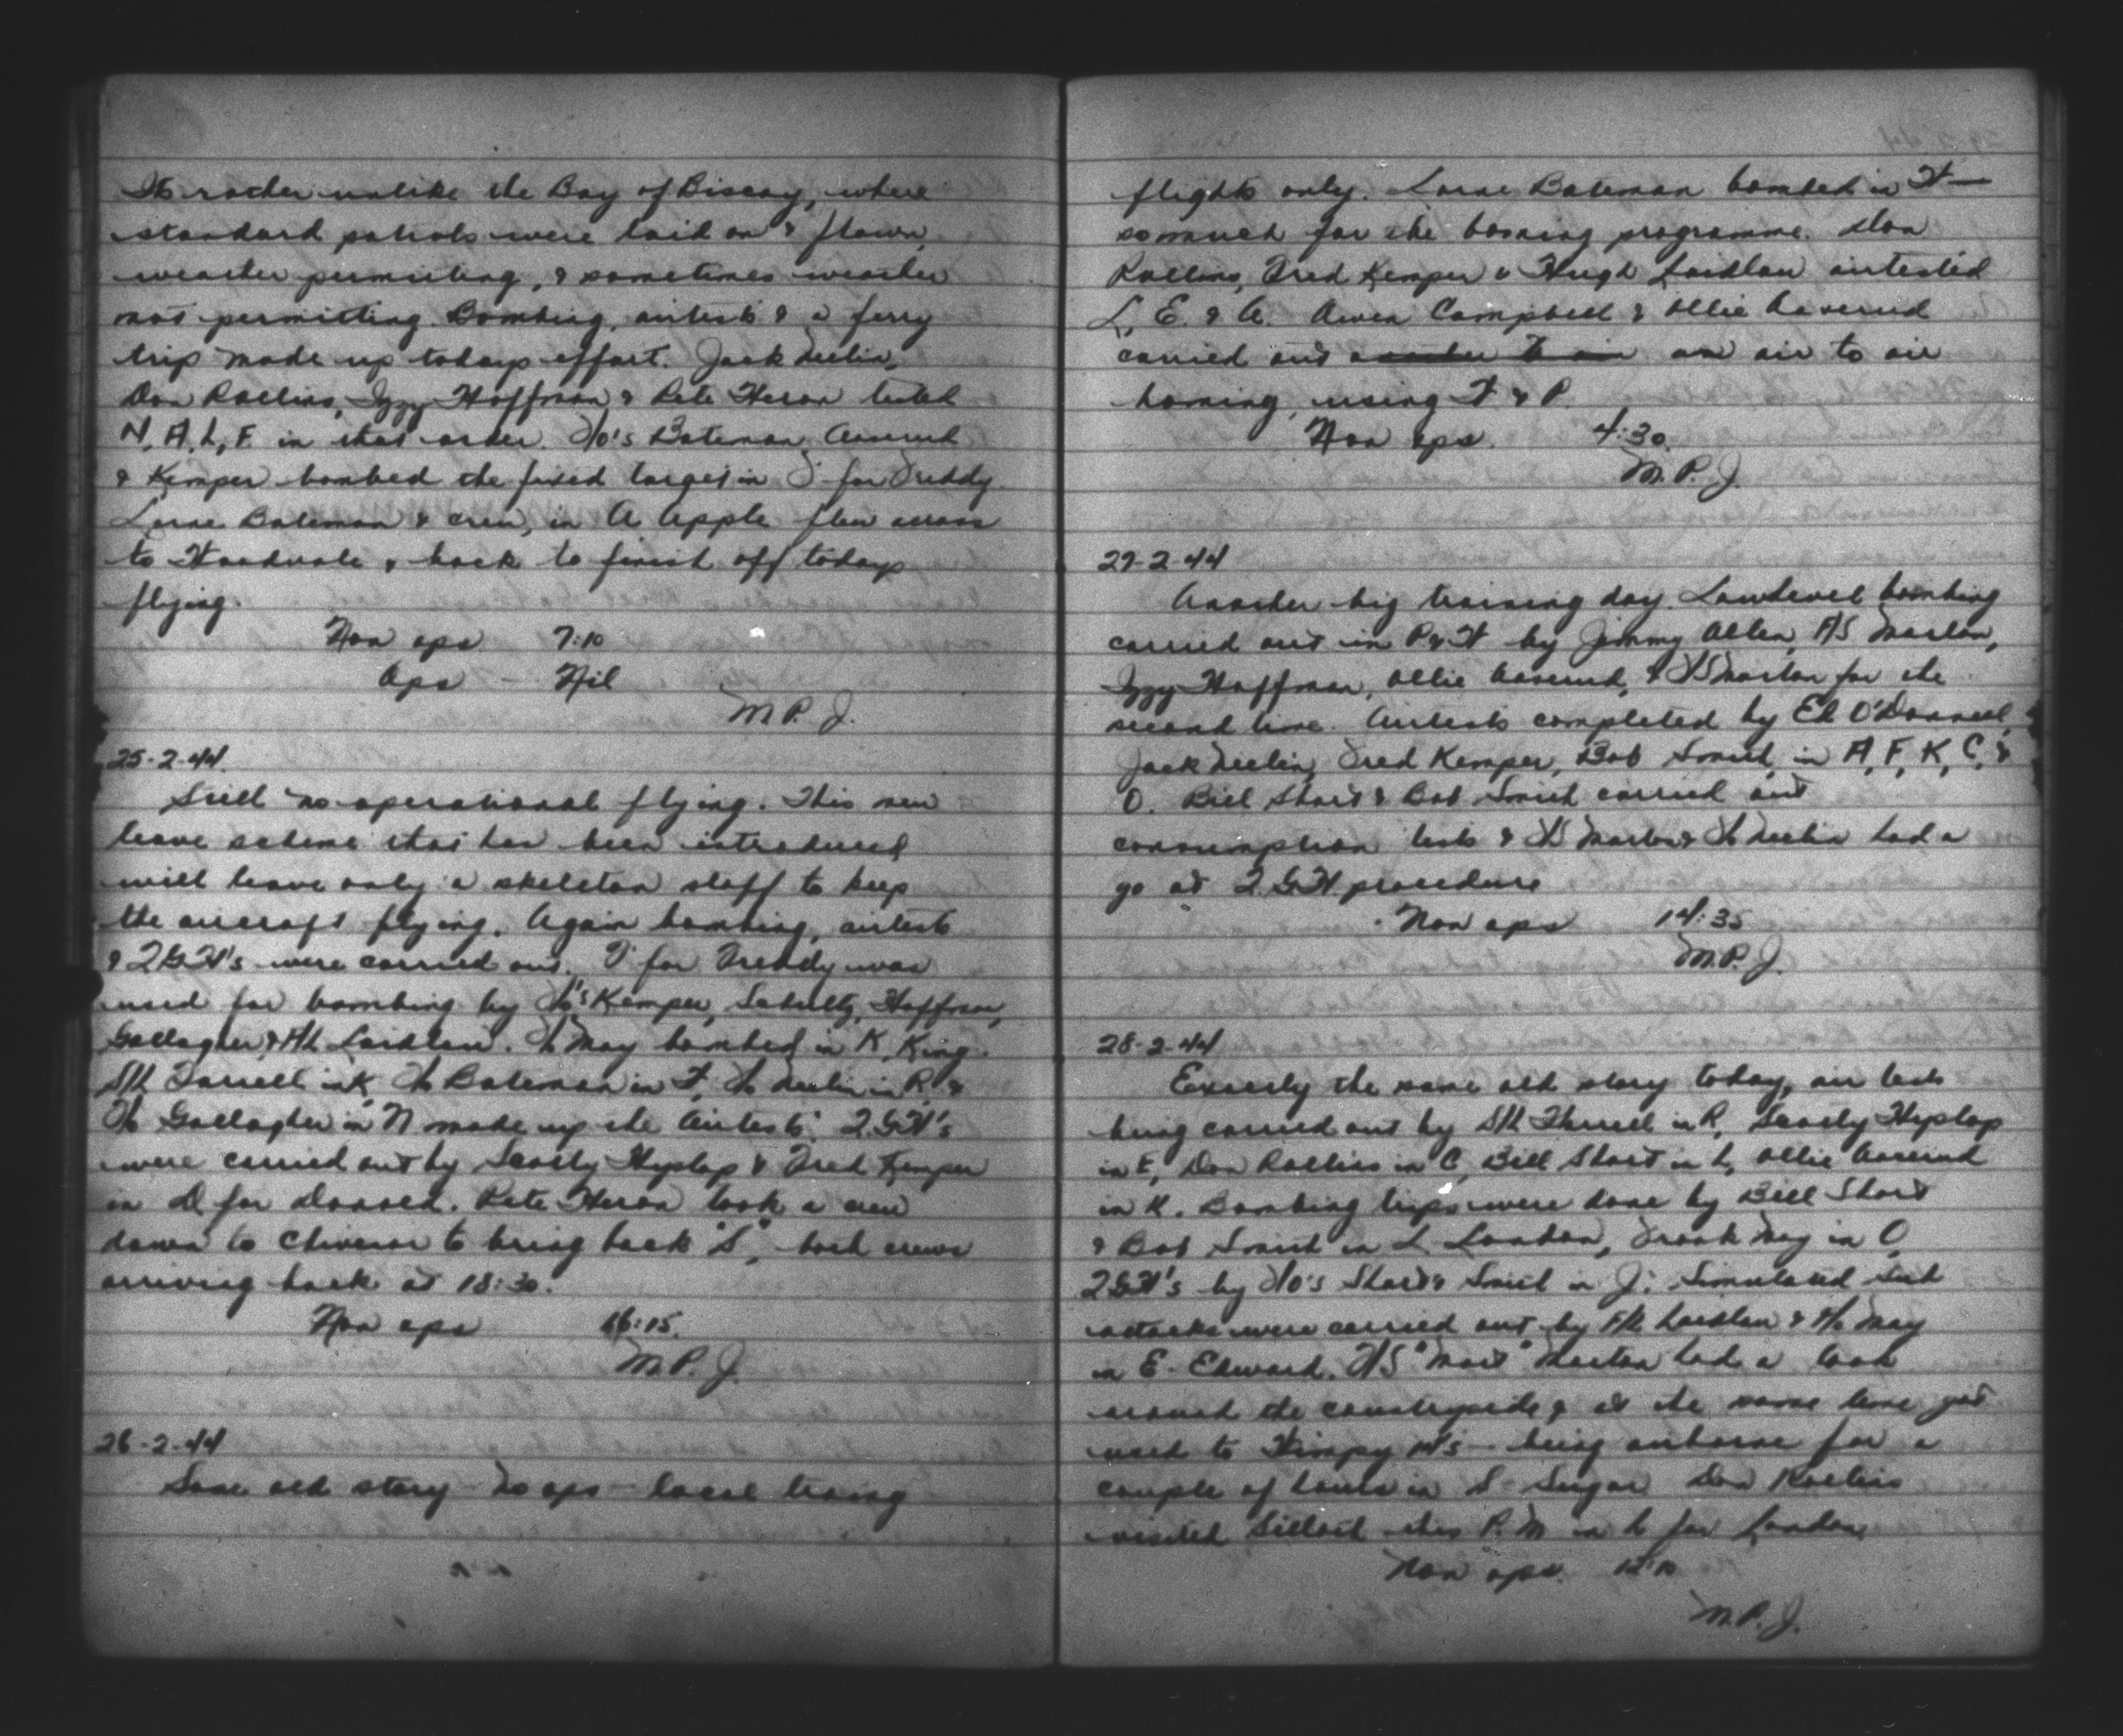 Its rather unlike the Bay of Biscay, where
standard patrols were laid on & flown
weather permitting, & sometimes weather
not permitting. Bombing, airtests & a ferry
trip made up todays effort. Jack Neelin,
Don Rollins, Izzy Hoffman & Pete Heron tested
N, A, L, F. in that order. F/O's Bateman, Averud
& Kemper bombed the fixed target in F for Freddy.
Lorne Bateman & crew, in A Apple flew across
to Woodvale & back to finish off todays
flying.
Non ops 7:10
Ops - Nil
M.P.J.
25-2-44.
Still no operational flying. This new
leave scheme that has been introduced
will leave only a skeleton staff to keep
the aircraft flying. Again bombing, airtests
& QGH's were carried out. F for Freddy was
used for bombing by F/O's Kemper, Schultz, Hoffman,
Gallagher & F/L Laidlaw. F/O May bombed in K, King.
S/L Farrell in K, F/O Bateman in F, F/O Neelin in R, &
F/O Gallagher in N made up the Airtests. QGH's
were carried out by Scotty Heyslop & Fred Kemper
in D for Donald. Pete Heron took a crew
down to Chivenor to bring back "S", both crews
arriving back at 18:30.
Non ops 16:15.
M.P.J.
26-2-44
Same old story no ops - local traing
flights only. Lorne Bateman bombed in H —
so much for the bombing programme. Don
Rollins, Fred Kemper & Hugh Laidlaw airtested
L, E. & A. Owen Campbell & Ollie Averud
carried out an air to air
homing, using H & P.
Non ops. 4:30.
M.P.J.
27-2-44
Another big training day. Low level bombing
carried out in P & H by Jimmy Allen, F/S Marton,
Izzy Hoffman, Ollie Averud, & F/S Marton for the
second time. Airtests completed by Ed O'Donnell,
Jack Neelin, Fred Kemper, Bob Smith, in A, F, K, C, &
O. Bill Short & Bob Smith carried out
consumption tests & F/S Marton & F/O Neelin had a
go at QGH procedure
Non ops 14:35
M.P.J.
28-2-44
Exactly the same old story today, air tests
being carried out by S/L Farrell in R, Scotty Heyslop
in E, Don Rollins in C, Bill Short in L, Ollie Averud
in K. Bombing trips were done by Bill Short
& Bob Smith in L London, Frank May in O,
QGH's by F/O's Short & Smith in J. Simulated
attacks were carried out by F/L Laidlaw & F/O May
in E - Edward. F/S "Mart" Marton had a look
around the countryside & at the same time got
used to Wimpy 14's - being airborne for a
couple of hours in S - Sugar. Don Rollins
visited Silloth this P.M in L for London
Non ops.
M.P.J.